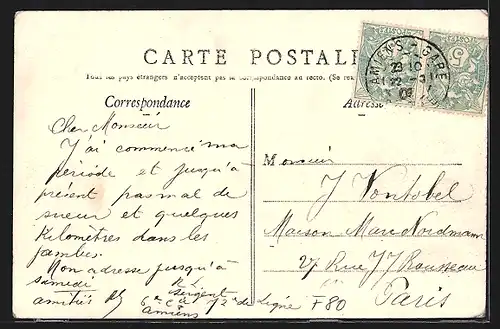 CARTE POSTALE
Tous les pays étrangers n'acceptent pas la correspondance au recto. (Se rense
Correspondance
Adresse
AMIENS - GARE
23 10
5
Cher Monsieur
J'ai commencé ma
période et jusqu'à
présent pas mal de
sueur et quelques
Kilomètres dans les
jambes.
Mon adresse jusqu'à
samedi
Sergent
amitiés
6e Cie 72e de Ligne
Amiens
Monsieur
J Vontobel
Maison Marc Nordmann
27 Rue JJ Rousseau
Paris
F80